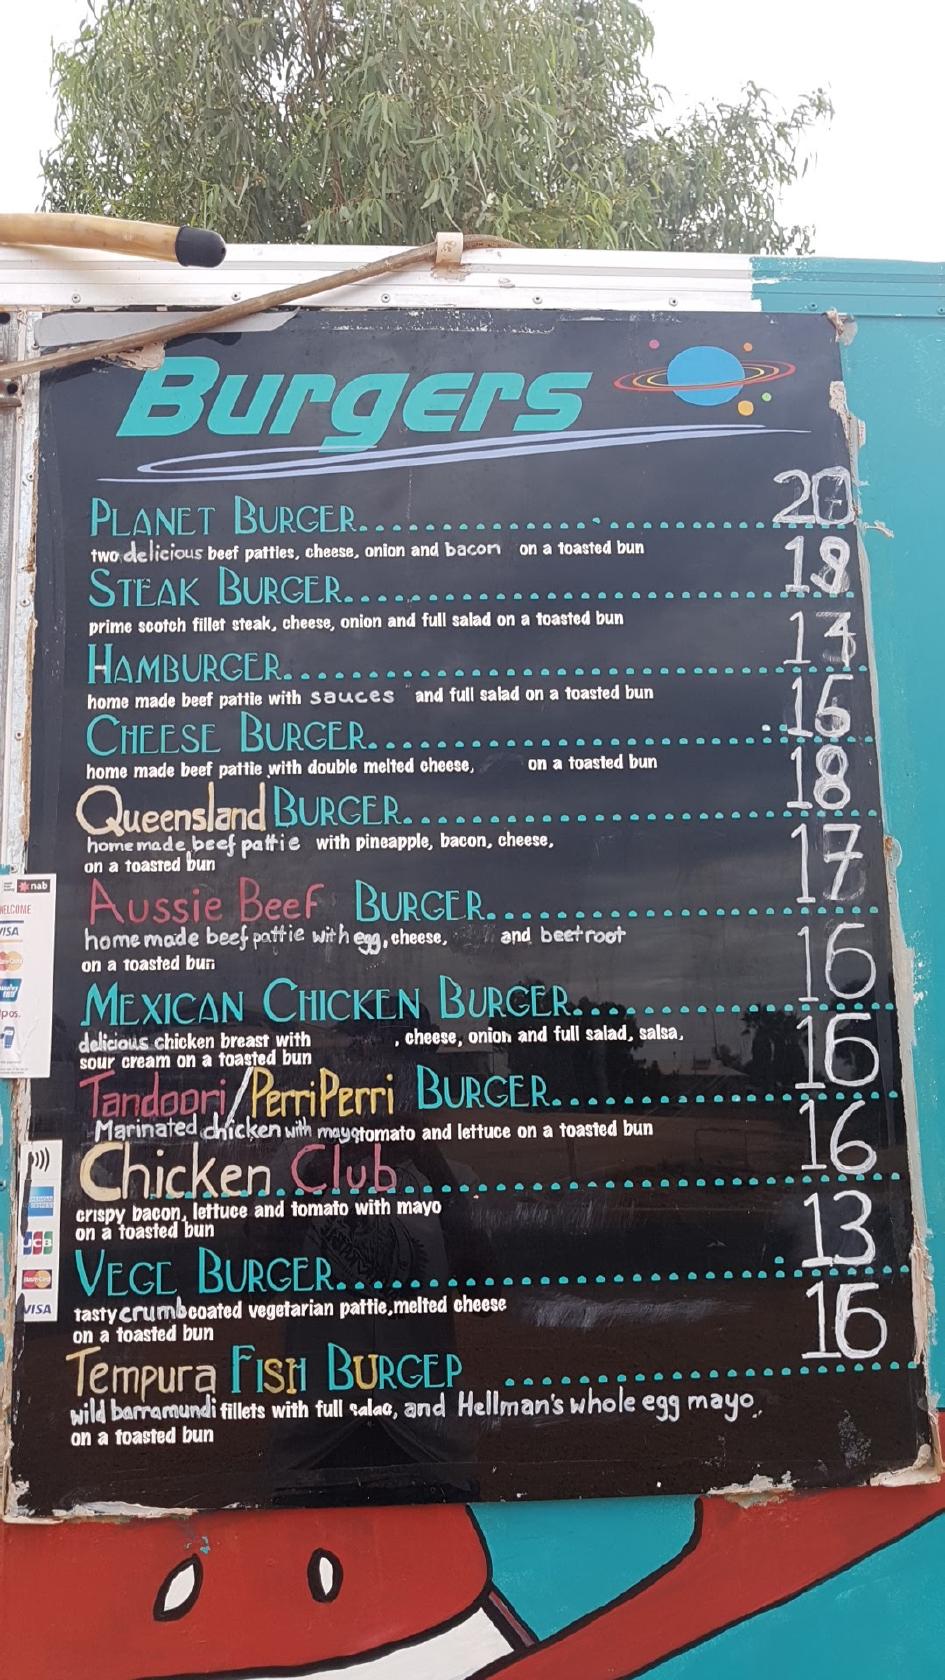 Burgers
PLANET BURGER 20
two delicious beef patties, cheese, onion and bacon on a toasted bun
STEAK BURGER
prime scotch fillet steak, cheese, onion and full salad on a toasted bun
HAMBURGER
home made beef pattie with sauces and full salad on a toasted bun
CHEESE BURGER
home made beef pattie with double melted cheese, on a toasted bun
Queensland BURGER 18
home made beef pattie with pineapple, bacon, cheese,
on a toasted bun
Aussie Beef BURGER 17
home made beef pattie with egg, cheese, and beetroot
on a toasted bun
MEXICAN CHICKEN BURGER 16
delicious chicken breast with , cheese, onion and full salad, salsa,
sour cream on a toasted bun
Tandoori/PerriPerri BURGER 16
Marinated chicken with mayo tomato and lettuce on a toasted bun
Chicken Club 16
crispy bacon, lettuce and tomato with mayo
on a toasted bun
VEGE BURGER 13
tasty crumb coated vegetarian pattie, melted cheese
on a toasted bun
Tempura FISH BURGER 16
wild barramundi fillets with full salad, and Hellman's whole egg mayo.
on a toasted bun
nab
VISA
pos.
JCB
MasterCard
VISA